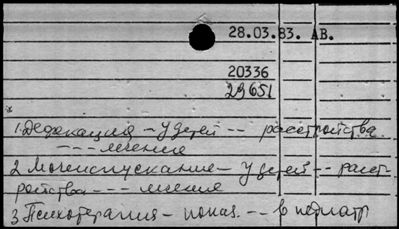 28.03.83. АВ.
20336
29651
*
1. Дефекация - у детей -- расстройства
--- лечение
2. Мочеиспускание - у детей -- расст-
ройства --- лечение
3. Психотерапия - показ. -- в педиатр